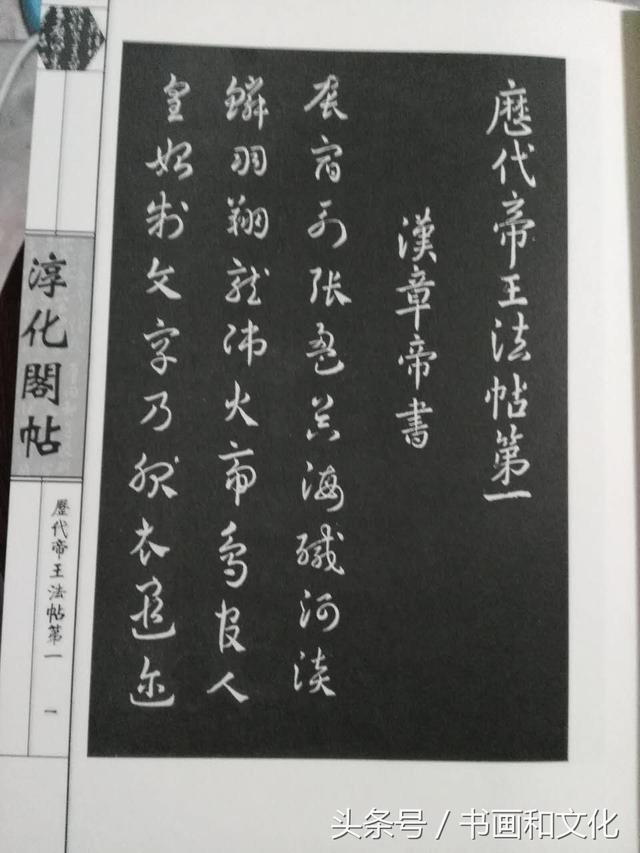 歷代帝王法帖第一
漢章帝書
辰宿列張盈海鹹河淡
鱗羽翔龍師火帝鳥官人
皇始制文字乃服衣遐邇
淳化閣帖
歷代帝王法帖第一
一
头条号 / 书画和文化